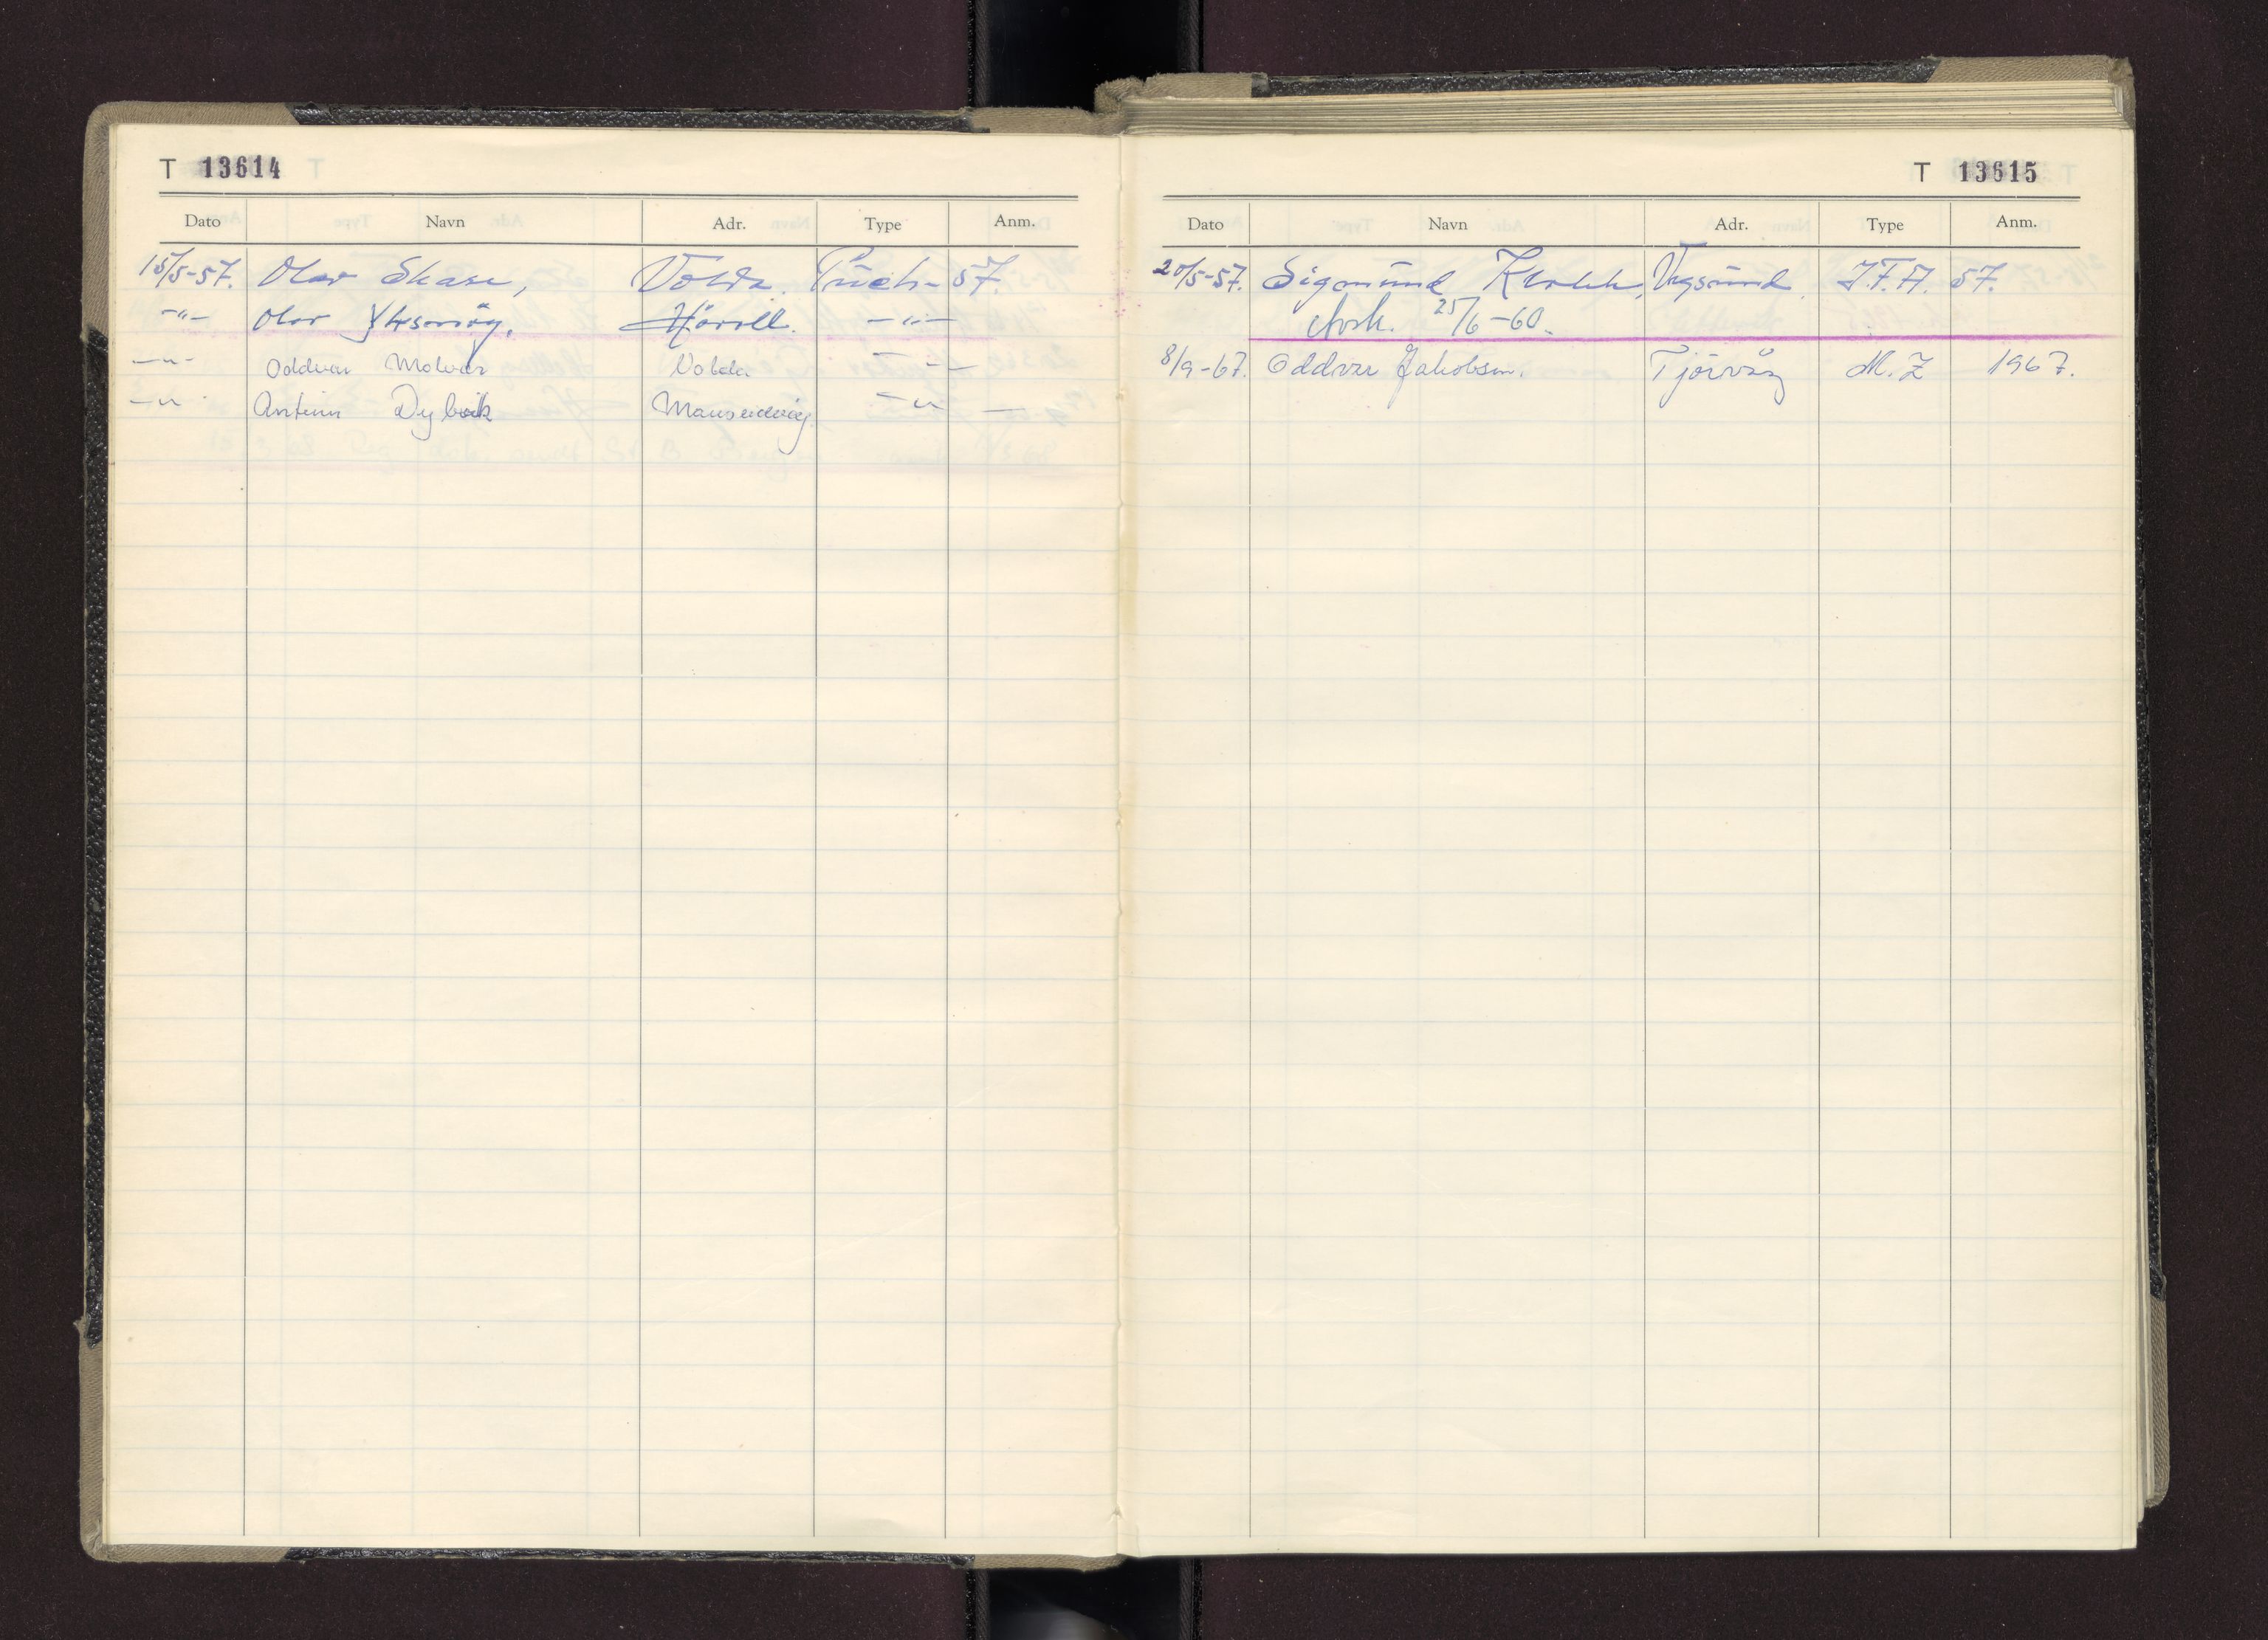 T 13614
Dato Navn Adr. Type Anm.
15/5-57. Olav Skase, Volda. Puch- 57.
-"- Olav Ytrsmög. -"-
-"- Oddvar Molvær Volda -"-
-"- Dybvik Mauseidvåg. -"-
T 13615
Dato Navn Adr. Type Anm.
20/5-57. Sigmund Krokk, Vegsund. J.F.A. 57.
Avsk. 25/6-60.
8/9-67. Oddvar Jakobsen. Tjørvåg M.Z 1967.